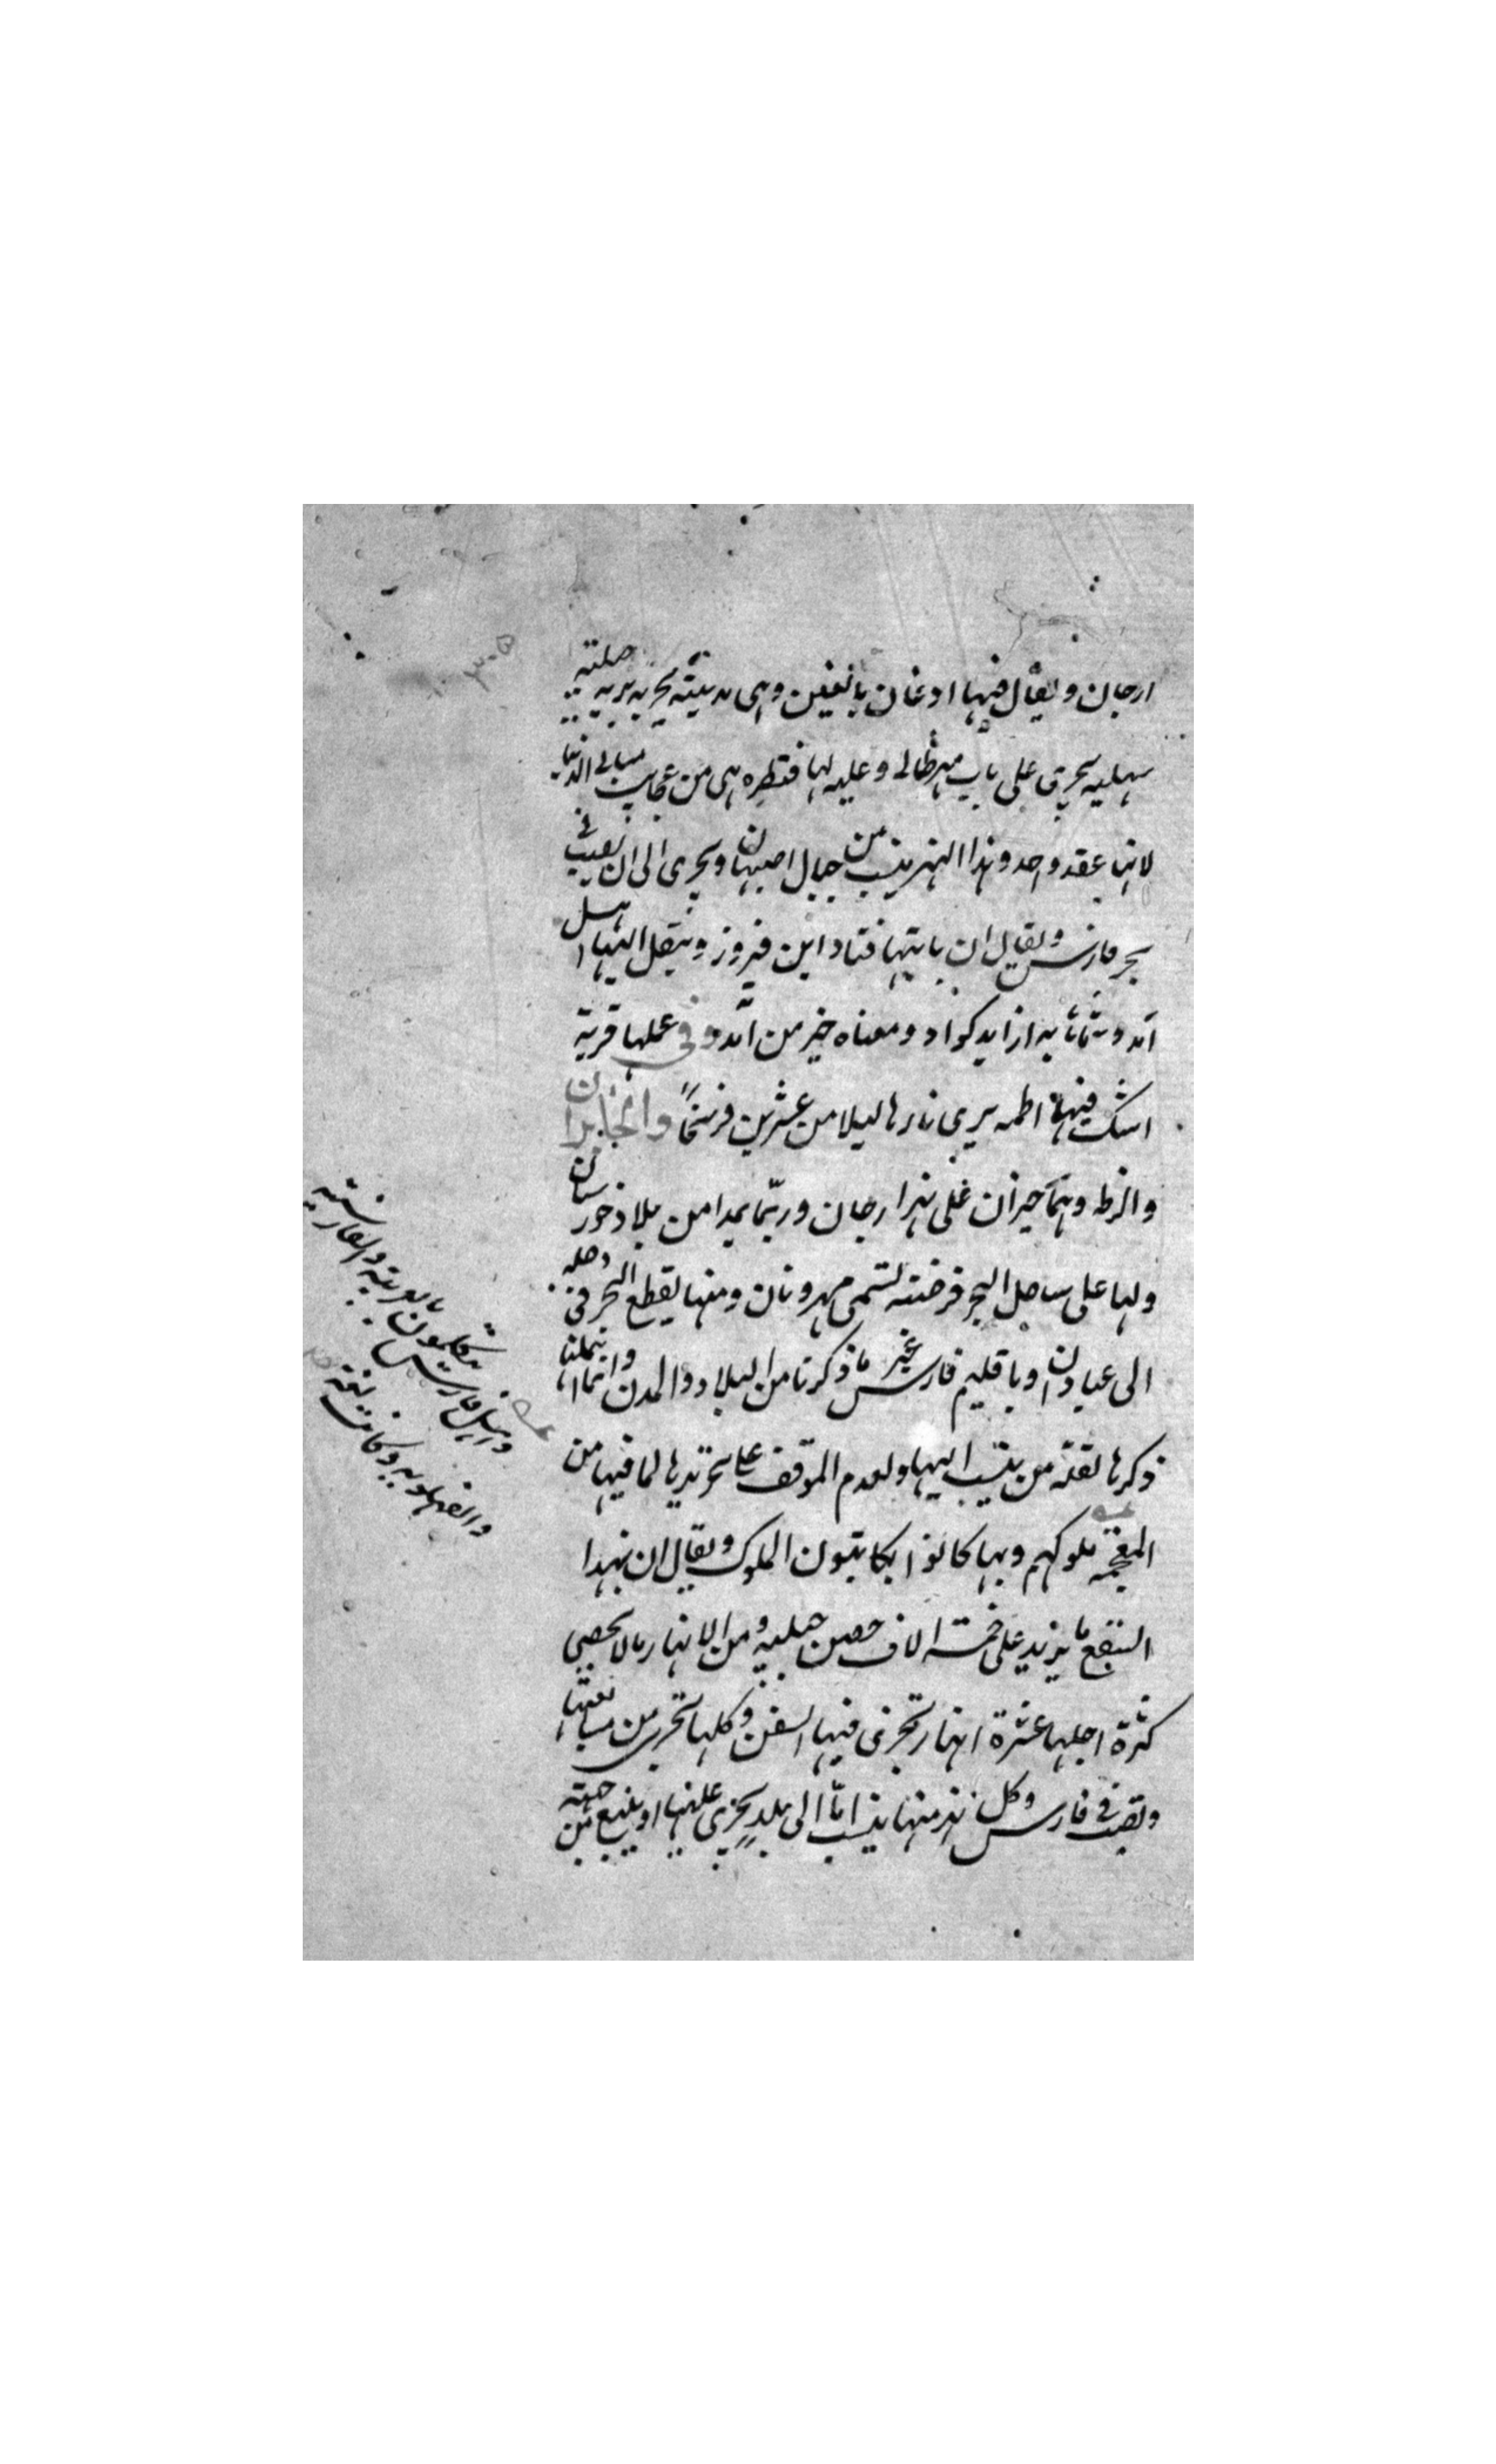 ارجان ويقال فيها ارغان بالغين وهى مدينة بحرية برية جبلية
سهلية يجرى على باب نهر طاب وعليه لها قنطره هى من عجايب مبانى الدنيا
لانها عقد واحد وهذا النهر ينسب من جبال اصبهان ويجرى الى ان يصب فى
بحر فارس ويقال ان بانيها قباد ابن فيروز ونقل اليها اهل
آمد وسماها به از ايد كواد ومعناه خير من آمد وفى عملها قرية
اسك فيها اطمه يرى نارها ليلا من عشرين فرسخاً والخابران
والزط وهما حيزان على نهر ارجان وربما عدا من بلاد خورستان
ولها على ساحل البحر فرضة تسمى مهروبان ومنها يقطع البحر فى دجلة
الى عبادان وباقليم فارس غير ما ذكرنا من البلاد والمدن وانما اهملنا
ذكرها لقلة من ينسب اليها ولعدم الموقف على تحريرها لما فيها من
المعجمة ملوكهم وبها كانوا يكاتبون الملوك ويقال ان بهذا
السقع ما يزيد على خمسة الاف حصن جبلية ومن الانهار ما لا يحصى
كثرة اجلها عشرة انهار تجرى فيها السفن وكلها تجرى من
وتصب فى فارس وكل نهر منها ينسب اما الى بلد يجرى عليها او ينبع من جهته
واهل فارس يتكلمون بالعربية والفارسية
والفهلوية وكانت لغة